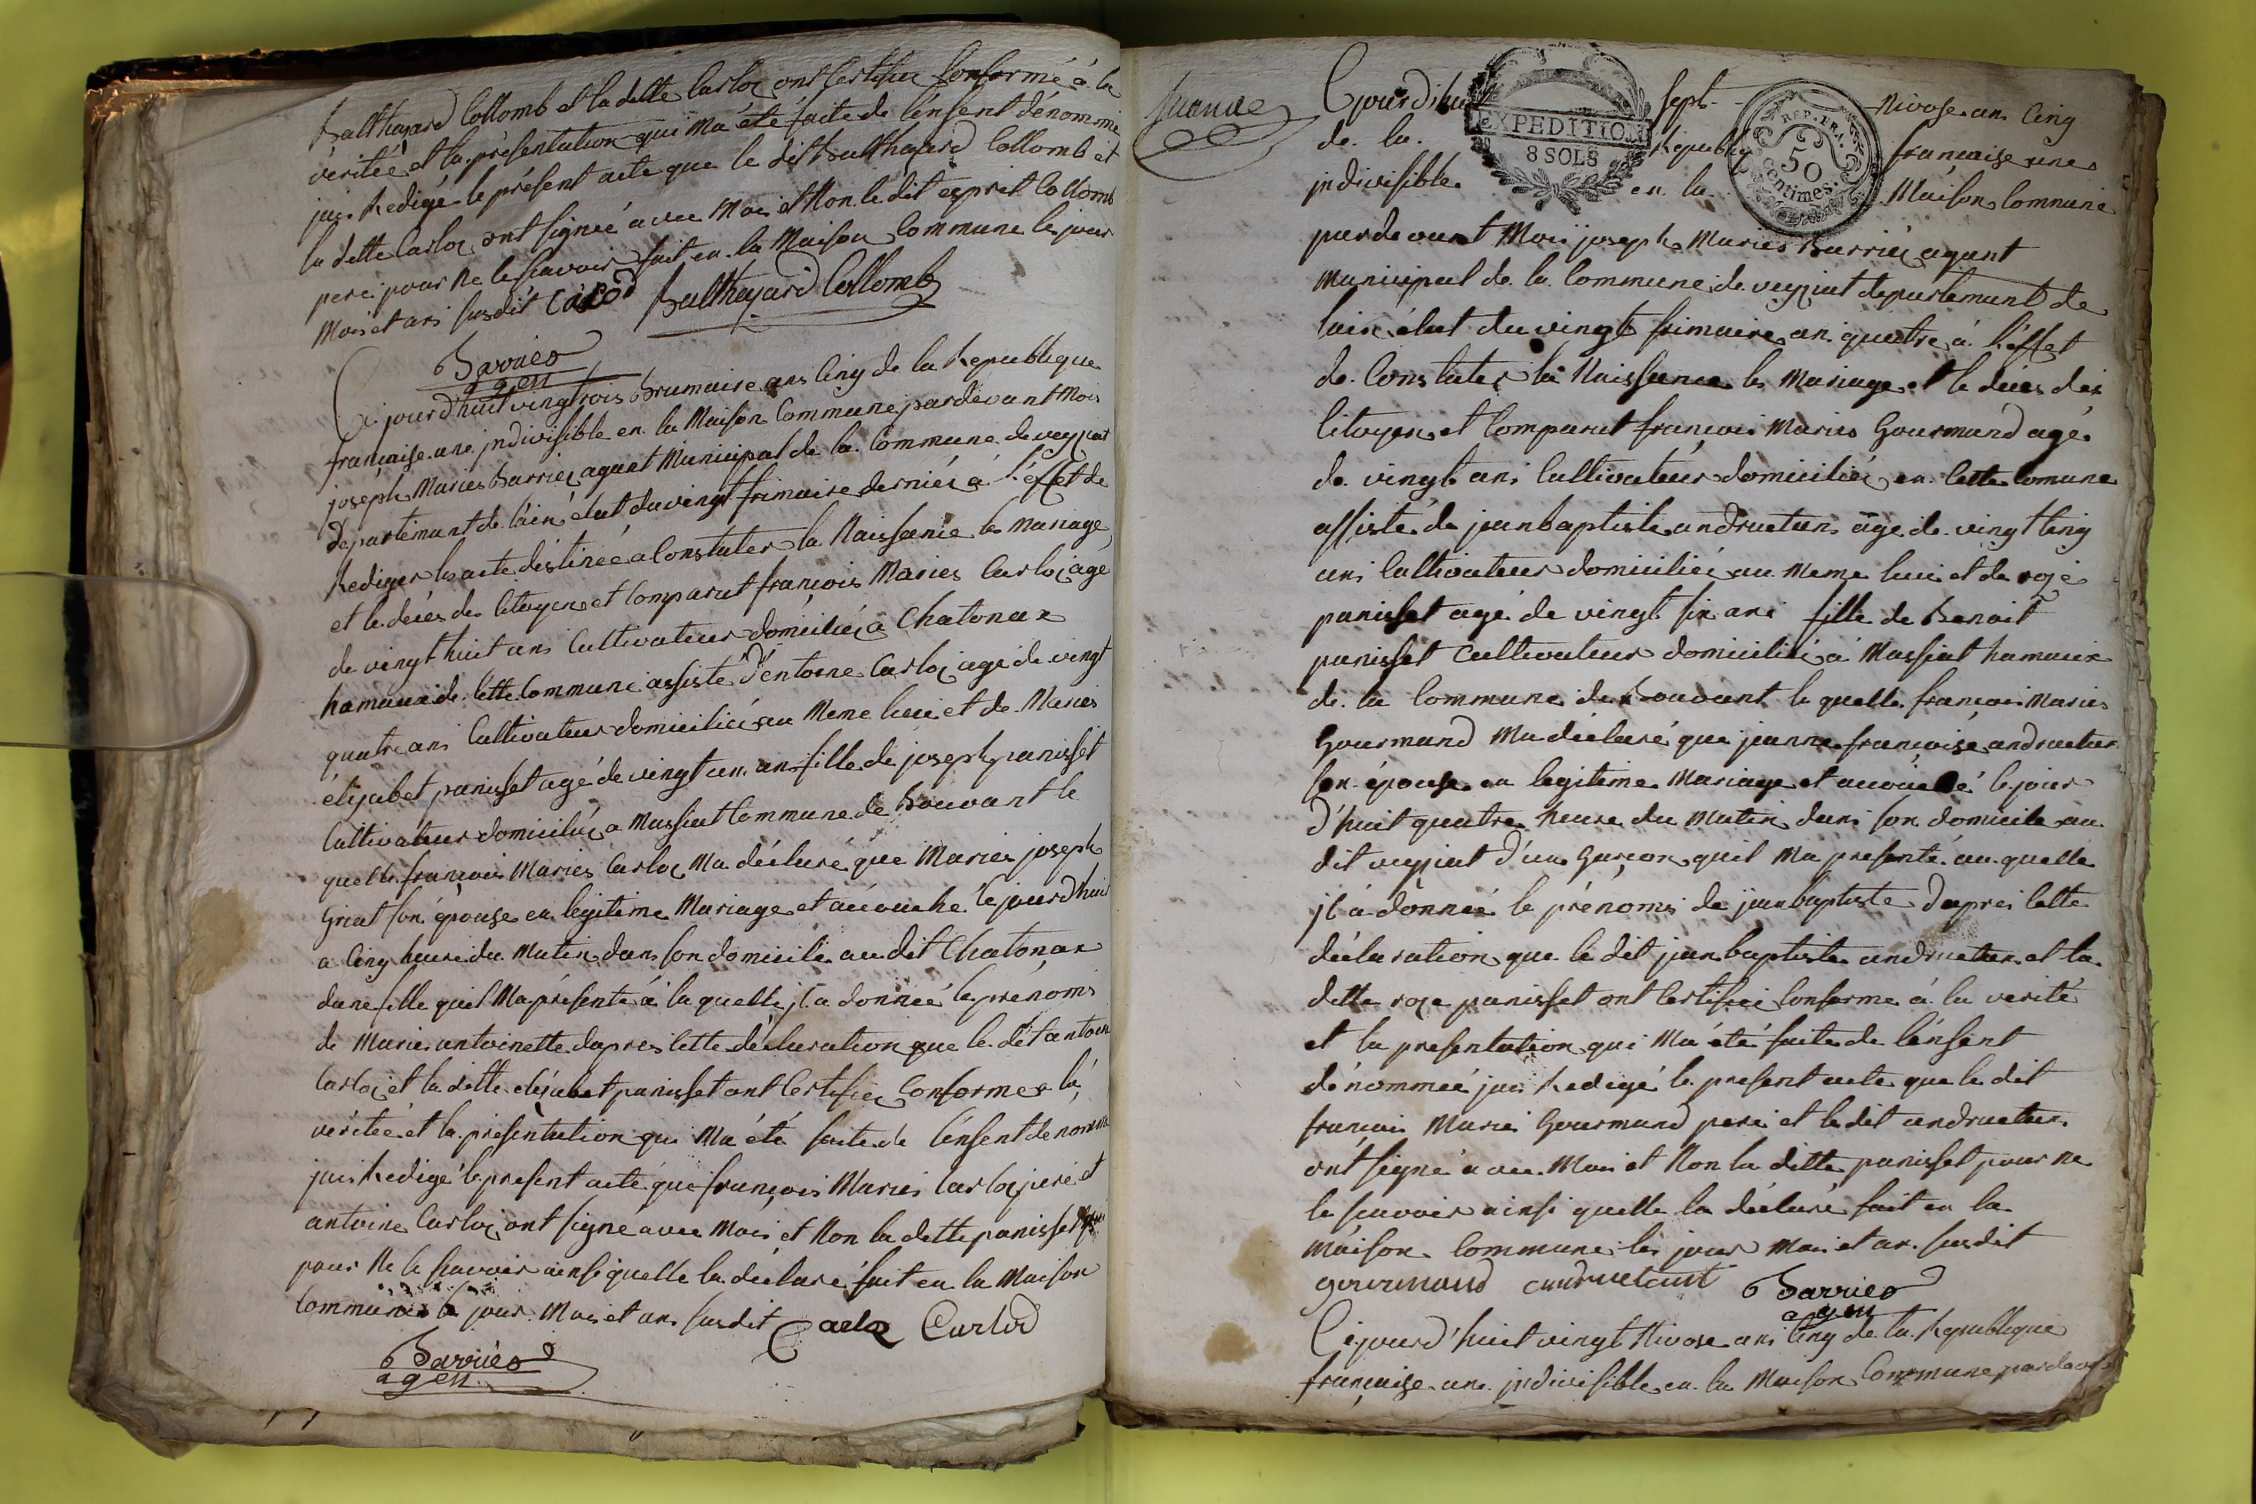 Balthazard Collomb et la ditte Carloz ont Certifiee Conformé à la
véritée et la présentation qui Ma été faite de lénfent dénommé
jai Redigé le présent acte que le dit Balthazard Collomb et
la ditte Carloz ont signeé avec Moi et Non le dit esprit Collomb
pere pour ne le scavoir fait en la Maison Commune le jour
Mois et ans susdit Balthazard Collomb
Barriéo
agen
Cejourdhuit vingtrois Brumaire ans Cinq de la Republique
française une jndivisible en la Maison Commune pardevant Moi
joseph Maries Barriez agant Municipal de la Commune de veyziat
départemant de láin élut du vingt frimaire derniéz à l'éffet de
Rediger les acte déstinée a Constater la Naissance le Mariage
et le décés des Citoyens et Comparut françois Maries Carloz agé
de vingt huit ans Cultivateur domiciliéz à Chatonax
hamaux de Cette Commune assisté d'entoine Carloz agé de vingt
quatre ans Cultivateur domiciliéz au Meme lieu et de Maries
élizabet panisset agé de vingt un ans fille de joseph panisset
Cultivateur domiciliéz a Massiat Commune de Bouvant le
quelle françois Maries Carloz Ma déclaré que Maries joseph
griat son épouse en legitime Mariage et acouché le jourdhuit
a Cinq heure du Matin dans son domicile au dit Chatonax
dune fille quil Ma présenté à la quelle jl a donneé le prénoms
de Marie antoinette daprés Cette déclaration que le dit antoin
Carloz et la ditte élizabet panisset ont Certifiez Conforme a la
véritée et la présentation qui Ma été faite de lénfent denommé
jai Redigé le present acte que françois Maries Carloz pere et
antoine Carloz ont signé avec Moi et Non la ditte panisset
pour Ne le scavoir ainsi quelle la déclaré fait en la Maison
Commune le jour Mois et ans susdit Carloz Carlod
Barriéo
agen
Cejourdhuit sept Nivose ans Cinq
de la Republique française une
jndivisible en la Maison Commune
EXPEDITION
8 SOLS
REP. FRA.
50
Centimes.
pardevant Moi joseph Maries Barriez agant
Municipal de la Commune de veyziat departemant de
lain élut du vingt frimaire ans quatre à l'éffet
de Constater la Naissance le Mariage et le décés des
Citoyens et Comparut françois Maries Gourmand agé
de vingt ans Cultivateur domiciliéz en Cette Comune
assisté de jeanbaptiste andruetan âge de vingt Cinq
ans Cultivateur domiciliéz au Meme lieu et de roze
panisset agé de vingt six ans fille de Benoit
panisset Cultivateur domiciliéz à Massiat hamaux
de la Commune de Bouvant le quelle françois Maries
Gourmand Ma déclaré que jeanne françoise andruetan
son épouse en legitime Mariage et acouché le jour
d'huit quatre heure du Matin dans son domicile au
dit veyziat d'un Garçon quil Ma presenté au quelle
jl a donneé le prénoms de jeanbaptiste d'aprés Cette
déclaration que le dit jeanbaptiste andruetan et la
ditte roze panisset ont Certifiéz Conforme à la verité
et la presentation qui Ma été faite de lénfent
dénommeé jai Redigé le present acte que le dit
françois Maries Gourmand pere et le dit andruetan
ont signé avec Moi et Non la ditte panisset pour ne
le scavoir ainsi quelle la déclaré fait en la
Maison Commune les jour Mois et an susdit
gourmand andruetant Barriéo
agen
Cejourd'huit vingt Nivose ans Cinq de la Republique
française une jndivisible en la Maison Commune pardevant